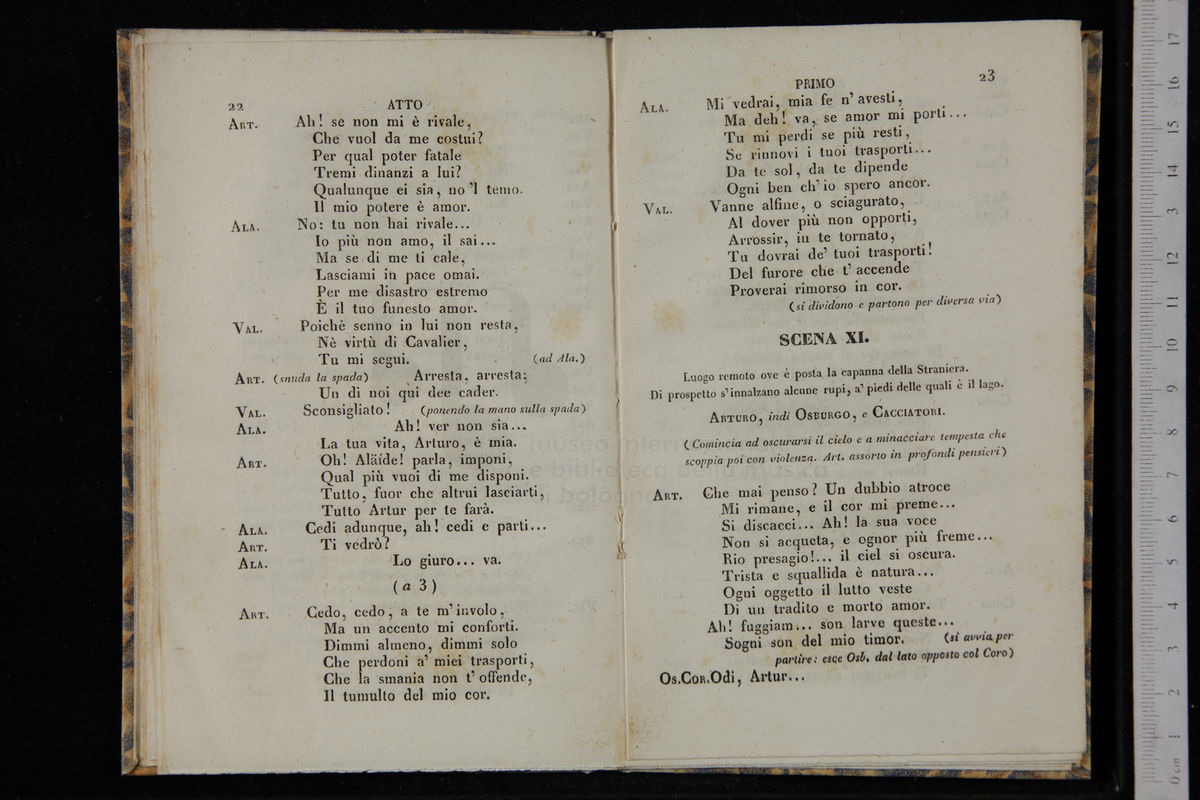 22 ATTO
ART. Ah! se non mi è rivale,
Che vuol da me costui?
Per qual poter fatale
Tremi dinanzi a lui?
Qualunque ei sia, no 'l temo.
Il mio potere è amor.
ALA. No: tu non hai rivale...
Io più non amo, il sai...
Ma se di me ti cale,
Lasciami in pace omai.
Per me disastro estremo
È il tuo funesto amor.
VAL. Poichè senno in lui non resta,
Nè virtù di Cavalier,
Tu mi segui. (ad Ala.)
ART. (snuda la spada) Arresta, arresta;
Un di noi qui dee cader.
VAL. Sconsigliato! (ponendo la mano sulla spada)
ALA. Ah! ver non sia...
La tua vita, Arturo, è mia.
ART. Oh! Alàíde! parla, imponi,
Qual più vuoi di me disponi.
Tutto, fuor che altrui lasciarti,
Tutto Artur per te farà.
ALA. Cedi adunque, ah! cedi e parti...
ART. Ti vedrò?
ALA. Lo giuro... va.
(a 3)
ART. Cedo, cedo, a te m' involo,
Ma un accento mi conforti.
Dimmi almeno, dimmi solo
Che perdoni a' miei trasporti,
Che la smania non t' offende,
Il tumulto del mio cor.
PRIMO 23
ALA. Mi vedrai, mia fe n' avesti,
Ma deh! va, se amor mi porti...
Tu mi perdi se più resti,
Se rinnovi i tuoi trasporti...
Da te sol, da te dipende
Ogni ben ch' io spero ancor.
VAL. Vanne alfine, o sciagurato,
Al dover più non opporti,
Arrossir, in te tornato,
Tu dovrai de' tuoi trasporti!
Del furore che t' accende
Proverai rimorso in cor.
(si dividono e partono per diversa via)
SCENA XI.
Luogo remoto ove è posta la capanna della Straniera.
Di prospetto s'innalzano alcune rupi, a' piedi delle quali è il lago.
ARTURO, indi OSBURGO, e CACCIATORI.
(Comincia ad oscurarsi il cielo e a minacciare tempesta che
scoppia poi con violenza. Art. assorto in profondi pensieri)
ART. Che mai penso? Un dubbio atroce
Mi rimane, e il cor mi preme...
Si discacci... Ah! la sua voce
Non si acqueta, e ognor più freme...
Rio presagio!... il ciel si oscura.
Trista e squallida è natura...
Ogni oggetto il lutto veste
Di un tradito e morto amor.
Ah! fuggiam... son larve queste...
Sogni son del mio timor. (si avvia per
partire: esce Osb. dal lato opposto col Coro)
OS.COR. Odi, Artur...